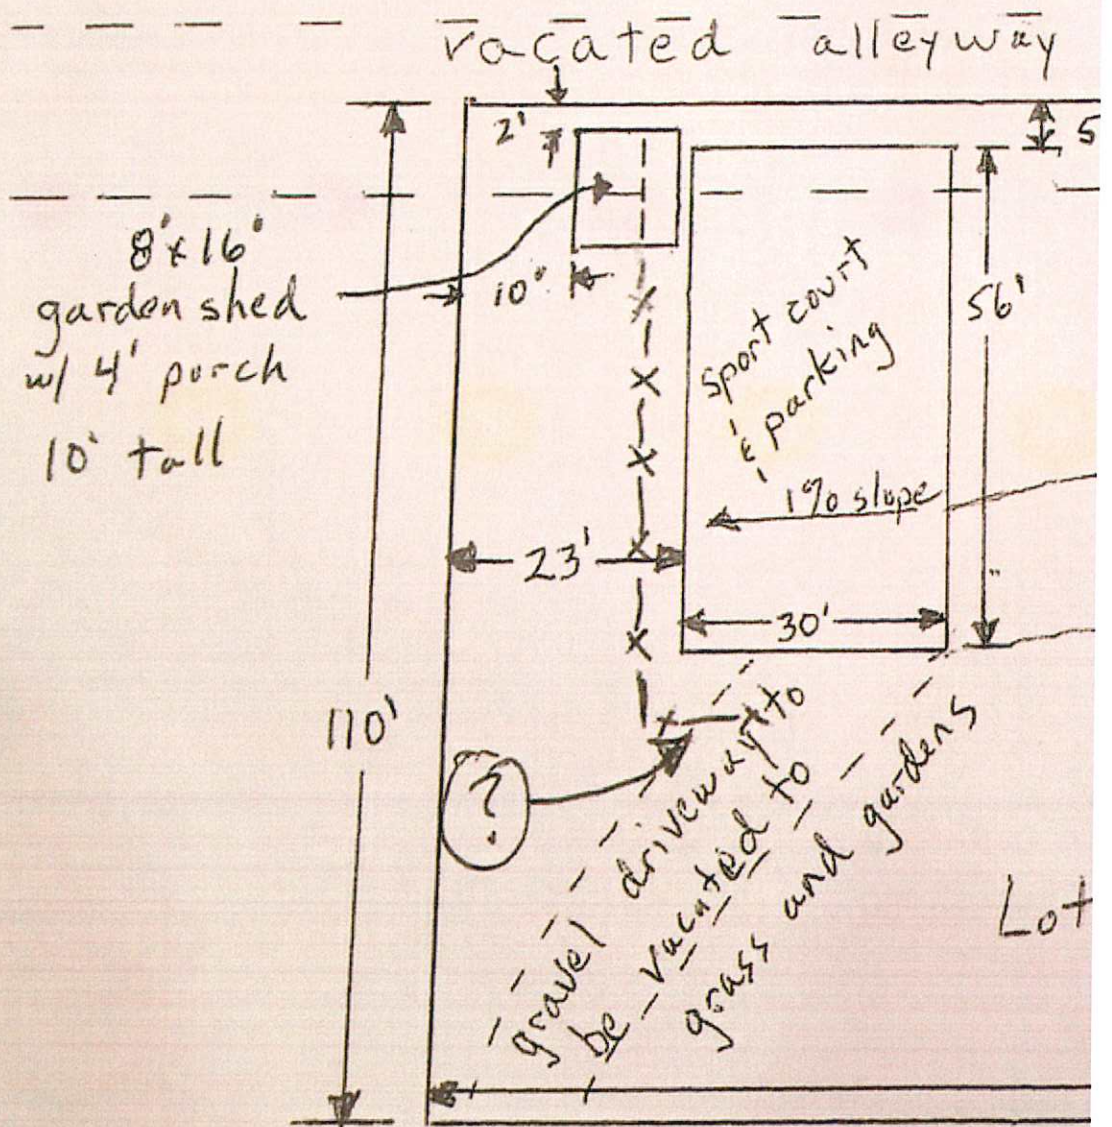 vacated alleyway
2'
5
8'x16'
garden shed
w/ 4' porch
10' tall
10'
56'
sport court
& parking
1% slope
23'
30'
110'
?
gravel driveway to
be vacated to
grass and gardens
Lot